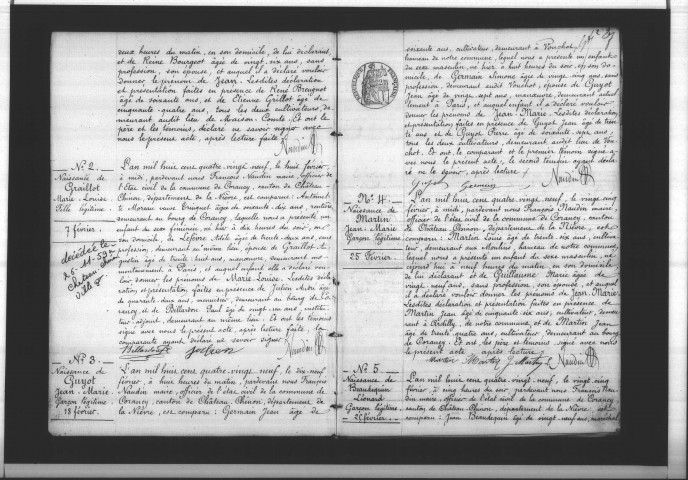 deux heures du matin, en son domicile, de lui déclarant,
et de Reine Bourgeot âgé de vingt six ans, sans
profession, son épouse, et auquel il a déclaré vouloir
donner le prénom de Jean. Lesdites déclaration
et présentation faites en présence de René Breugnot
âgé de soixante ans, et de Etienne Grillot âgé de
cinquante quatre ans, tous les deux cultivateurs, de-
meurant audit lieu de Maison Comte. Et ont le
père et les témoins, déclaré ne savoir signer avec
nous le présent acte, après lecture faite.
Naudin
N° 2
Naissance de
Graillot
Marie Louise
Fille légitime
7 février
décédée le
L'an mil huit cent quatre vingt neuf, le huit février
à midi, pardevant nous François Naudin maire, officier de
l'état civil de la commune de Corancy, canton de Château
Chinon, département de la Nièvre, est comparue Antoinette
Moreau veuve âgée de soixante dix ans, rentière
demeurant au bourg de Corancy, laquelle nous a présenté un
enfant du sexe féminin, né hier à dix heures du soir, en
son domicile, de Lefèvre Adèle âgé de trente deux ans, sans
profession, demeurant au même lieu, épouse de Graillot
âgé de trente huit ans, manœuvre, demeurant mo-
mentanément à Paris, et auquel enfant elle a déclaré vou-
loir donner les prénoms de Marie Louise. Lesdites décla-
ration et présentation faites en présence de Julien André âgé
de quarante deux ans, menuisier, demeurant au bourg de Co-
rancy, et de Billardon Paul âgé de vingt un ans, institu-
teur adjoint, demeurant au même lieu. Et ont les témoins
signé avec nous le présent acte, après lecture faite, la
comparante ayant déclaré ne savoir signer.
Naudin
N° 3
Naissance de
Guyot
Jean Marie
Garçon légitime
18 février
L'an mil huit cent quatre vingt neuf, le dix neuf
février, à huit heures du matin, pardevant nous François
Naudin maire, officier de l'état civil de la commune de
Corancy, canton de Château Chinon, département de
la Nièvre, est comparu Germain Jean âgé de
soixante ans, cultivateur, demeurant à Vouchot,
hameau de notre commune, lequel nous a présenté un enfant
du sexe masculin, né hier à huit heures du soir, en son do-
micile, de Germain Simone âgé de vingt cinq ans, sans
profession, demeurant audit Vouchot, épouse de Guyot
Jean âgé de vingt sept ans, manœuvre, demeurant actuel-
lement à Paris, et auquel enfant il a déclaré vouloir
donner les prénoms de Jean Marie. Lesdites déclaration
et présentation faites en présence de Guyot Jean âgé de tren-
te ans, et de Guyot Pierre âgé de soixante six ans,
tous les deux cultivateurs, demeurant audit lieu de Vou-
chot. Et ont le comparant et le premier témoin signé a-
vec nous le présent acte, le second témoin ayant décla-
ré ne le savoir, après lecture.
Guyot Germain Naudin
N° 4
Naissance de
Martin
Jean Marie
Garçon légitime
25 février
L'an mil huit cent quatre vingt neuf, le vingt cinq
février, à midi, pardevant nous François Naudin maire
officier de l'état civil de la commune de Corancy, canton
de Château Chinon, département de la Nièvre, est
comparu Martin Louis âgé de trente six ans, cultiva-
teur, demeurant aux hameau de notre commune,
lequel nous a présenté un enfant du sexe masculin, né
aujourd'hui à neuf heures du matin, en son domicile
de lui déclarant et de Guillaume Marie âgée de
vingt neuf ans, sans profession, son épouse, et auquel
il a déclaré vouloir donner les prénoms de Jean Marie.
Lesdites déclaration et présentation faites en présence de
Martin Jean âgé de cinquante six ans, cultivateur, demeu-
rant à Ardilly, de notre commune, et de Martin Jean
âgé de trente quatre ans, cultivateur, demeurant au bourg
de Corancy. Et ont les père et témoins, signé avec nous
le présent acte, après lecture.
Martin Martin J. Martin Naudin
N° 5
Naissance de
Beaudequin
Léonard
Garçon légitime
25 février
L'an mil huit cent quatre vingt neuf, le vingt cinq
février, à cinq heures du soir, pardevant nous François Nau-
din maire, officier de l'état civil de la commune de Corancy,
canton de Château Chinon, département de la Nièvre, est
comparu Jean Beaudequin âgé de vingt neuf ans, maréchal